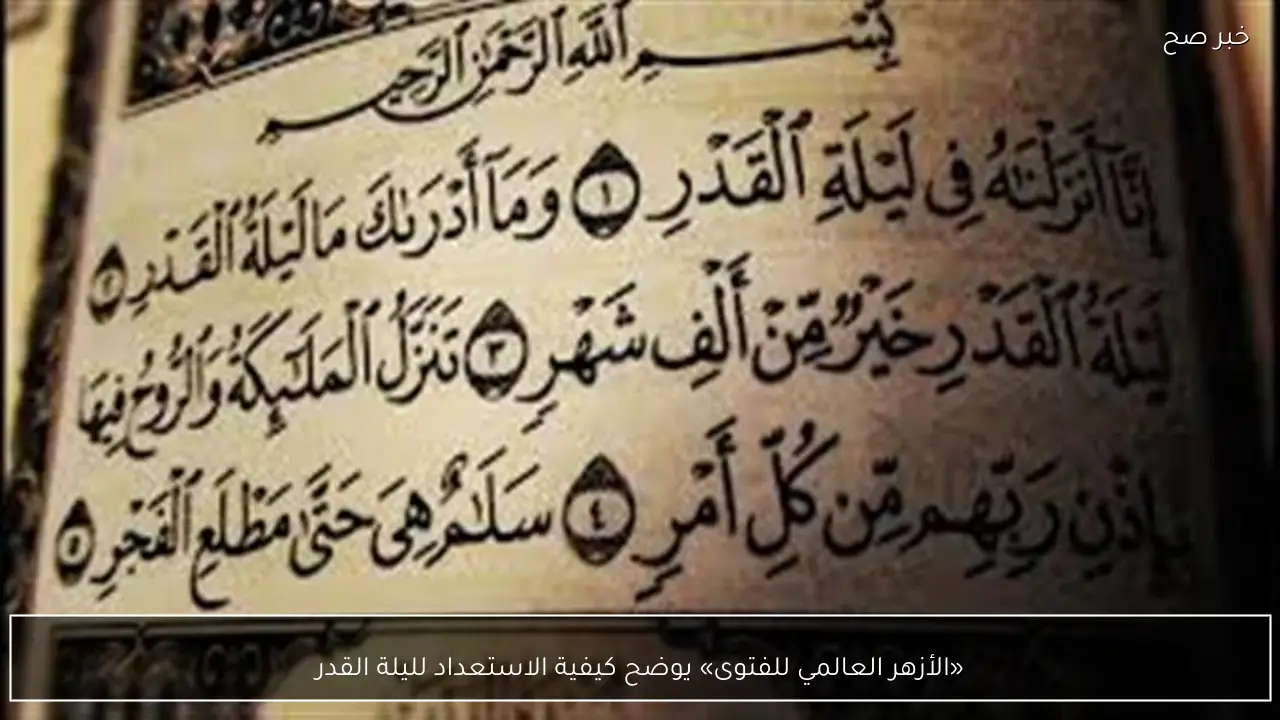 خبر صح
بِسْمِ ٱللَّهِ ٱلرَّحْمَٰنِ ٱلرَّحِيمِ
إِنَّآ أَنزَلْنَٰهُ فِى لَيْلَةِ ٱلْقَدْرِ ١ وَمَآ أَدْرَىٰكَ مَا لَيْلَةُ ٱلْقَدْرِ ٢
لَيْلَةُ ٱلْقَدْرِ خَيْرٌ مِّنْ أَلْفِ شَهْرٍ ٣ تَنَزَّلُ ٱلْمَلَٰٓئِكَةُ وَٱلرُّوحُ فِيهَا
بِإِذْنِ رَبِّهِم مِّن كُلِّ أَمْرٍ ٤ سَلَٰمٌ هِىَ حَتَّىٰ مَطْلَعِ ٱلْفَجْرِ ٥
«الأزهر العالمي للفتوى» يوضح كيفية الاستعداد لليلة القدر